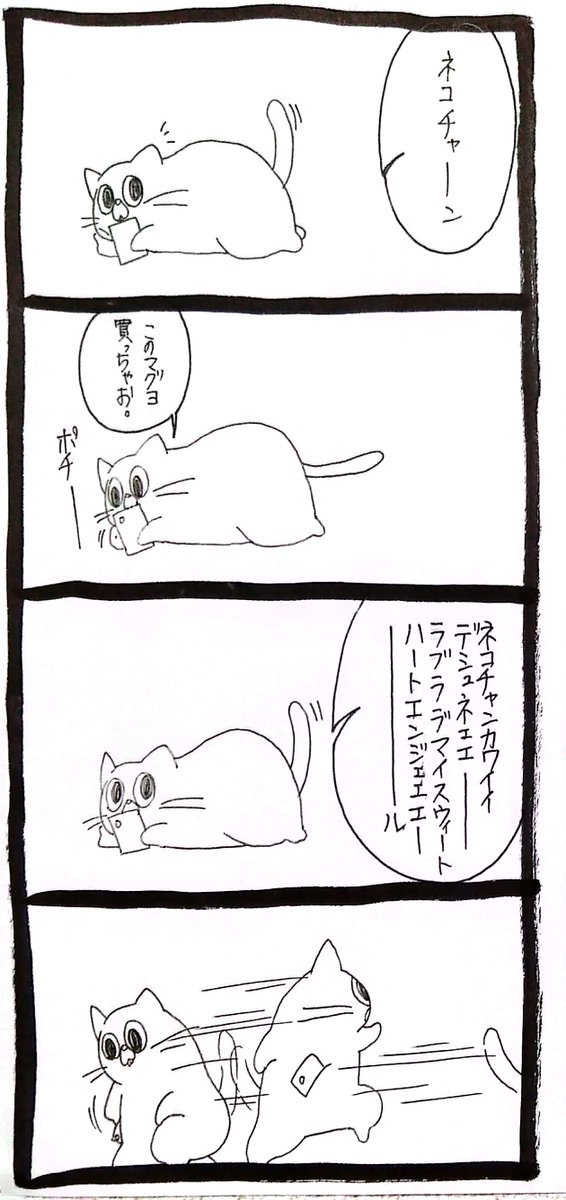 ネコチャーン
このマグヨ
買っちゃお。
ポチー
ネコチャンカワイイ
デシュネェェー
ラブラブマイスウィート
ハートエンジェエエー
ール